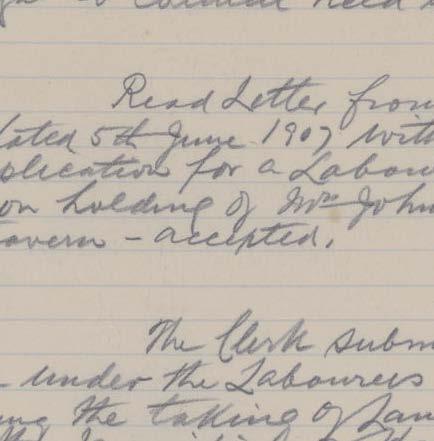 Read Letter from
dated 5th June 1907 with
plication for a Labou
on holding of Wm John
avern - accepted.
The Clerk subm
under the Labourers
ing the taking of Lan